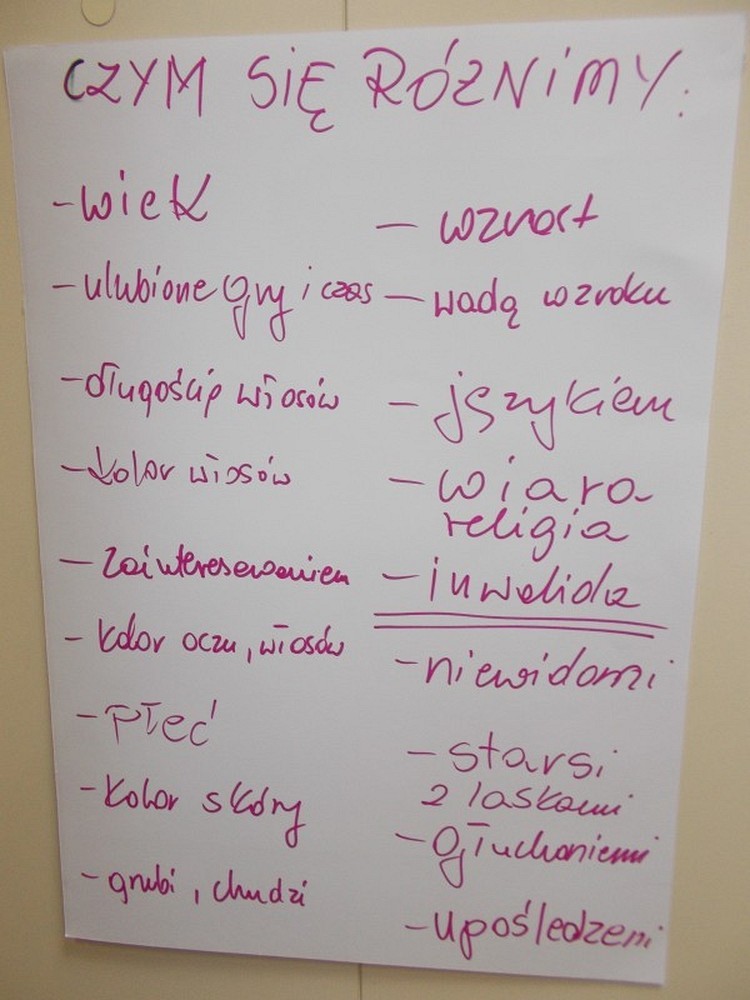 CZYM SIĘ RÓŻNIMY:
- wiek
- ulubione gry i czas
- długością włosów
- kolor włosów
- zainteresowaniem
- kolor oczu, włosów
- płeć
- kolor skóry
- grubi, chudzi
- wzrost
- wadą wzroku
- językiem
- wiara
religia
- inwalida
- niewidomi
- starsi
z laskami
- głuchoniemi
- upośledzeni